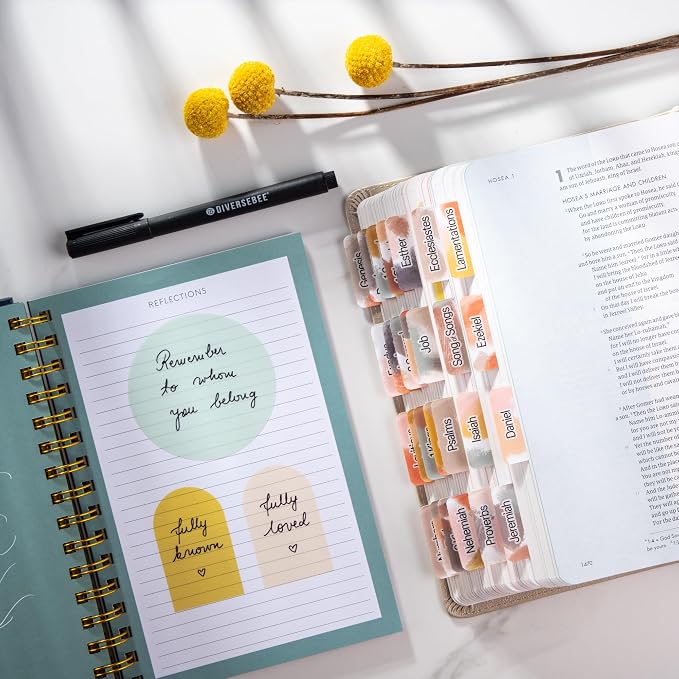 DIVERSEBEE
REFLECTIONS
Remember
to whom
you belong
fully
known
fully
loved
Genesis
Esther
Ecclesiastes
Lamentations
Job
Song of Songs
Ezekiel
Psalms
Isaiah
Daniel
Nehemiah
Proverbs
Jeremiah
HOSEA 1
1 The word of the LORD that came to Hosea son
of Uzziah, Jotham, Ahaz, and Hezekiah,
son of Joash, king of Israel.
HOSEA'S MARRIAGE AND CHILDREN
When the LORD first spoke to Hosea, he said
Go and marry a woman of promiscuity
and have children of promiscuity,
for the land is committing blatant acts
by abandoning the LORD.
So he went and married Gomer
and bore him a son. Then the LORD said
Name him Jezreel, for in a little
I will bring the bloodshed of Jezreel
on the house of Jehu
and put an end to the kingdom
of the house of Israel.
On that day I will break the bow
in Jezreel Valley.
She conceived again and gave
Name her Lo-ruhamah,
for I will no longer have
on the house of Israel.
I will certainly take them
But I will have compassion
and I will deliver them
I will not deliver them
or by horses and
After Gomer had weaned
a son. Then the LORD said
Name him Lo-ammi,
for you are not my
and I will not be
Yet the number of
will be like the
which cannot be
And in the place
you are not my
they will be
And the Judeans
will be gathered
They will
and go up
For the day
1470